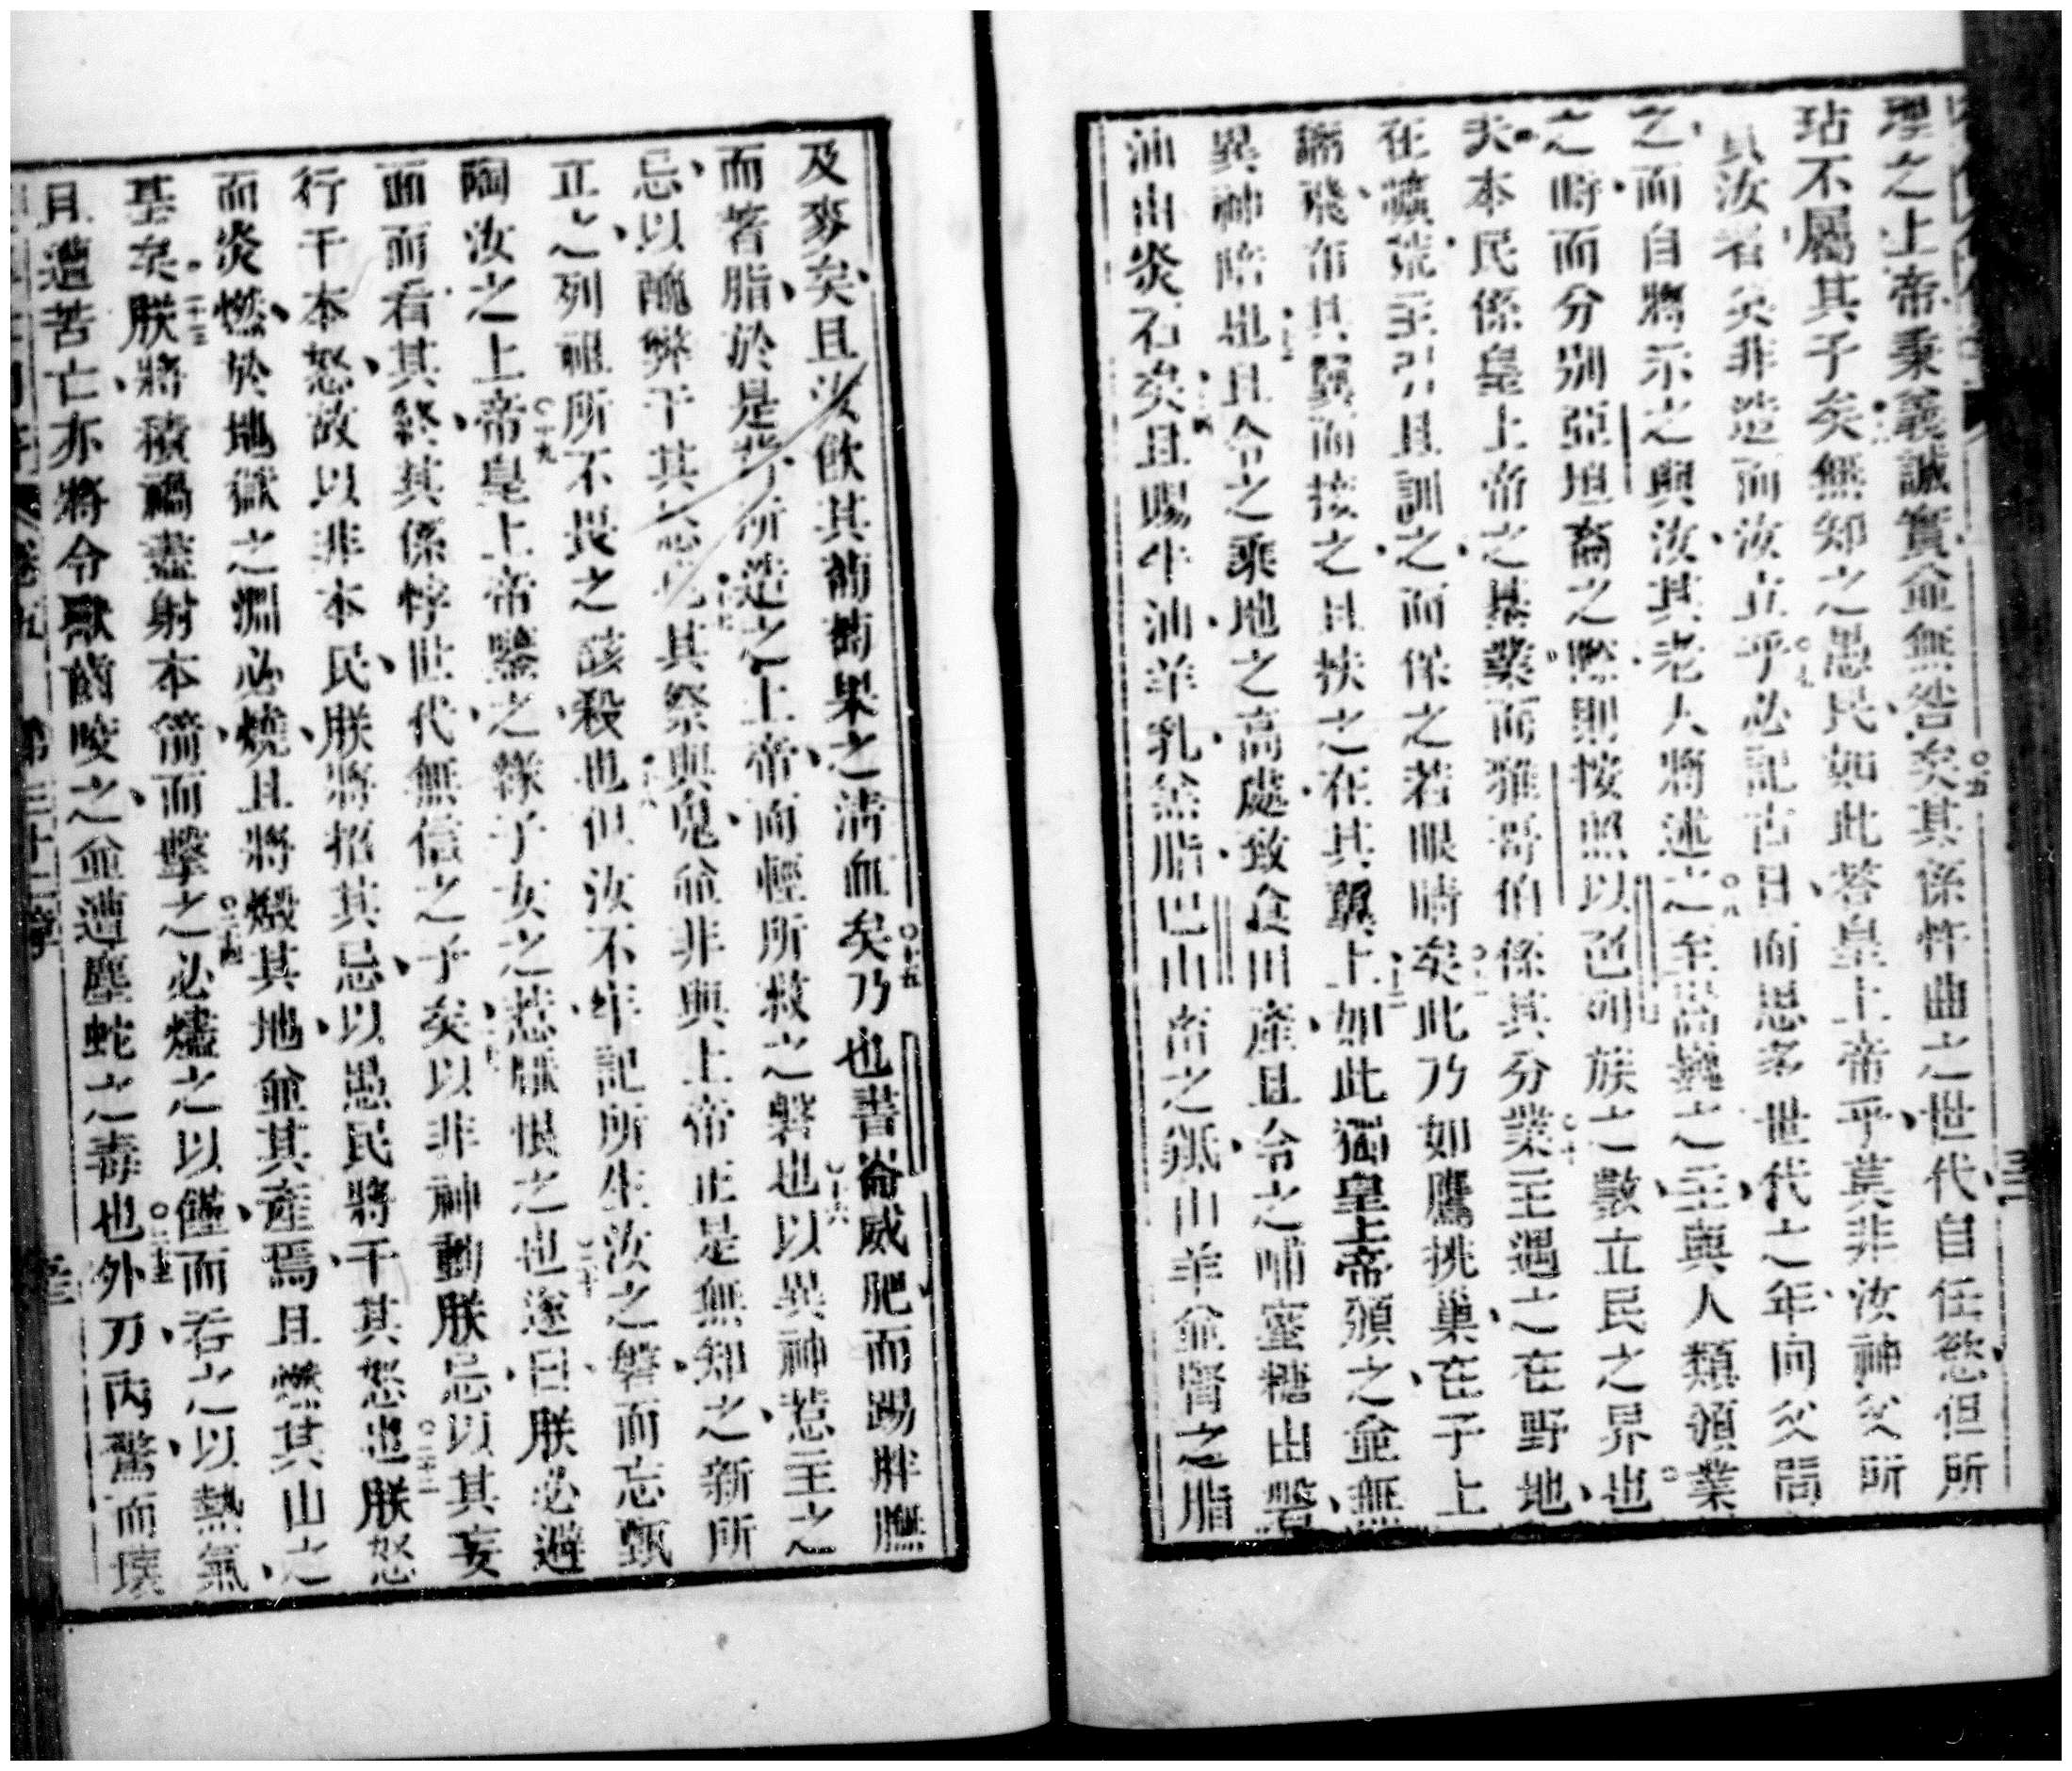 理之上帝秉義誠實並無咎矣○五其係忤曲之世代自任慾但所
玷不屬其子矣無知之愚民如此荅皇上帝乎莫非汝神父所
汝者矣非造而汝立乎○七必記古日而思多世代之年向父問
之而自將示之與汝其老人將述之○八至高巍之主與人類頒業
之時而分別亞坦裔之際則按照以色列族之數立民之界也○
夫本民係皇上帝之基業而雅哥伯係其分業○十主遇之在野地
在曠荒主引且訓之而保之若眼睛矣此乃如鷹挑巢在子上
翩飛布其翼而接之且扶之在其翼上○十二如此獨皇上帝頒之並無
異神陪也○十三且令之乘地之高處致食田產且令之哺蜜糖由磐
油由炎石矣○十四且賜牛油羊乳羔脂巴山畜之羝山羊並腎之脂
及麥矣且汝飲其葡萄果之清血矣○十五乃也書崙威肥而踢胖膴
而著脂於是背所造之上帝而輕所救之磐也○十六以異神惹主之
忌以醜弊干其怒也○十七其祭與鬼並非與上帝正是無知之新所
立之列祖所不畏之該殺也○十八但汝不牢記所生汝之磐而忘甄
陶汝之上帝○十九皇上帝鑒之緣子女之惹厭恨之也○二十遂曰朕必避
面而看其終其係悖世代無信之子矣以非神動朕忌以其妄
行干本怒故以非本民朕將招其忌以愚民將干其怒也○二十二朕怒
而炎燃於地獄之淵必燒且將燬其地並其產焉且燃其山之
基矣○二十三朕將積禍盡射本箭而擊之○二十四必燼之以饉而吞之以熱氣
且遭苦亡亦將令獸齒咬之並遭塵蛇之毒也○二十五外刀內驚而壞
卷九 第三十二章